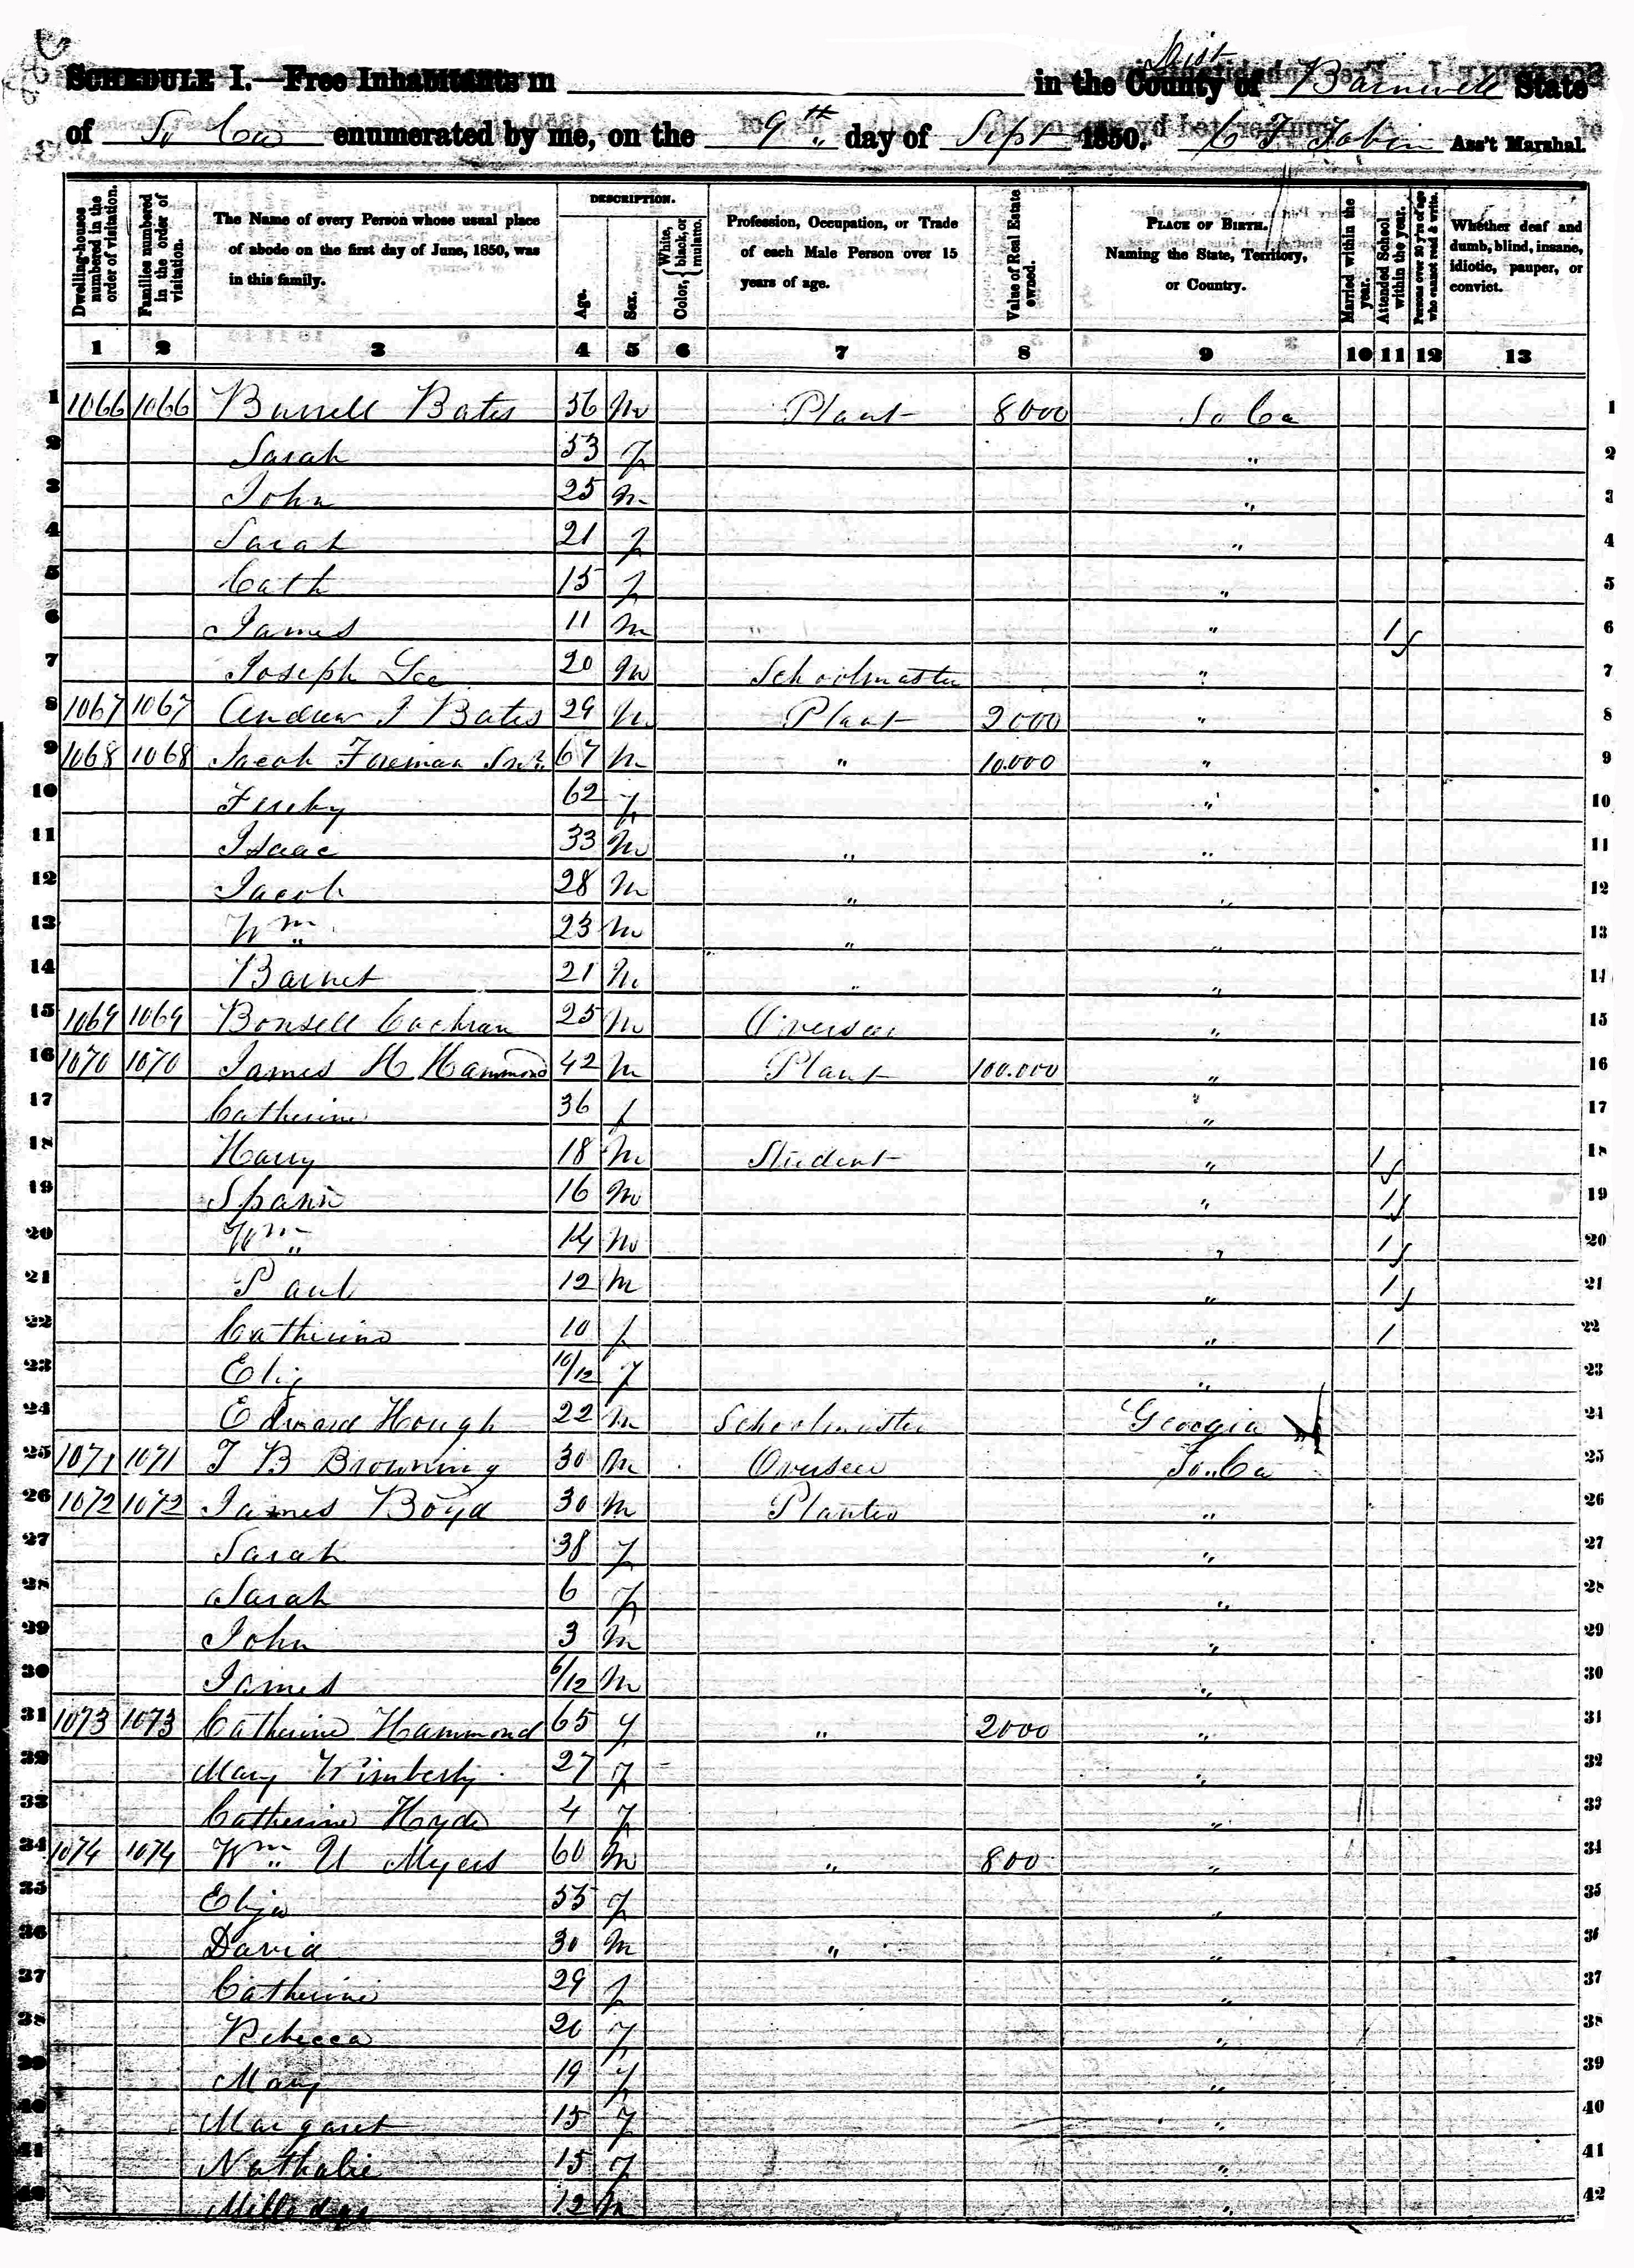 SCHEDULE I.—Free Inhabitants in in the County of Dist Barnwell State
of So Ca enumerated by me, on the 9th day of Sept 1850. Tobin Ass't Marshal.
Dwelling-house numbered in the order of visitation.
Families numbered in the order of visitation.
The Name of every Person whose usual place of abode on the first day of June, 1850, was in this family.
DESCRIPTION.
Age.
Sex.
Color, { White, black, or mulatto.
Profession, Occupation, or Trade of each Male Person over 15 years of age.
Value of Real Estate owned.
PLACE OF BIRTH. Naming the State, Territory, or Country.
Married within the year.
Attended School within the year.
Persons over 20 y'rs of age who cannot read & write.
Whether deaf and dumb, blind, insane, idiotic, pauper, or convict.
1 2 3 4 5 6 7 8 9 10 11 12 13
1 1066 1066 Burrell Bates 56 M Plant 8000 So Ca 1
2 Sarah 53 f " 2
3 John 25 M " 3
4 Sarah 21 f " 4
5 Cath 15 f " 5
6 James 11 M " " 1 6
7 Joseph Lee 20 M Schoolmaster " 7
8 1067 1067 Andrew J Bates 29 M Plant 2000 " 8
9 1068 1068 Jacob Foreman Snr 67 M " 10.000 " 9
10 62 f " 10
11 Isaac 33 M " " 11
12 Jacob 28 M " " 12
13 Wm 23 M " " 13
14 Barnet 21 M " " 14
15 1069 1069 Bonsell Cochran 25 M Overseer " 15
16 1070 1070 James H Hammond 42 M Plant 100.000 " 16
17 Catherine 36 f " 17
18 Harry 18 M Student " 1 18
19 Spann 16 M " 1 19
20 Wm 14 M " 1 20
21 Paul 12 M " 1 21
22 Catherine 10 f " 1 22
23 Eliz 10/12 f " 23
24 Edward Hough 22 M Schoolmaster Georgia 24
25 1071 1071 T B Browning 30 M Overseer So. Ca 25
26 1072 1072 James Boyd 30 M Planter " 26
27 Sarah 38 f " 27
28 Sarah 6 f " 28
29 John 3 M " 29
30 James 6/12 M " 30
31 1073 1073 Catherine Hammond 65 f " 2000 " 31
32 Mary Wimberly 27 f " 32
33 Catherine Hyde 4 f " 33
34 1074 1074 Wm U Myers 60 M " 800 " 34
35 Eliza 55 f " 35
36 David 30 M " " 36
37 Catherine 29 f " 37
38 Rebecca 20 f " 38
39 Mary 19 f " 39
40 Margaret 15 f " 40
41 Nathalie 15 f " 41
42 Milledge 12 M " 42